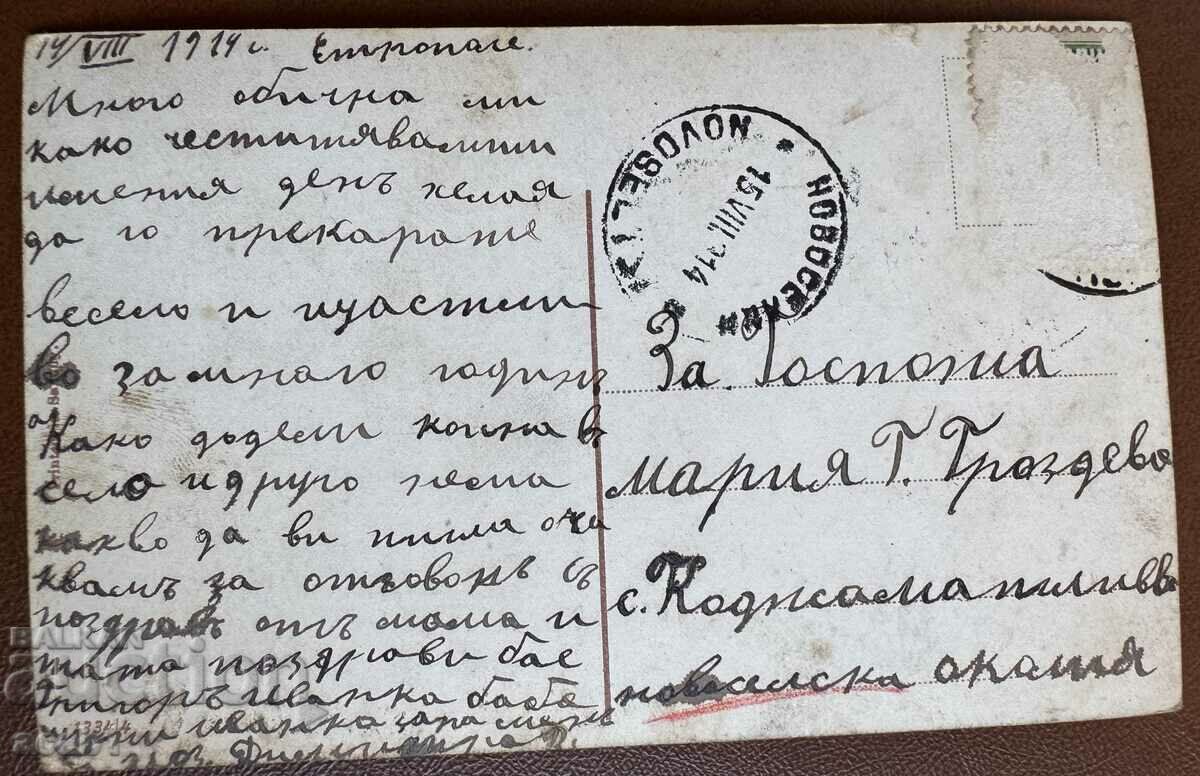 14/VIII 1914 г. Етрополе.
Много обична ми
како честитявамти
имения день желая
да го прекараше
весело и щастли
во за много годинъ
Како додели
село и друго нема
какво да ви пиша оча
квамъ за отговоръ съ
поздравъ отъ мама и
тата поздрави бае
Григоръ Иванка баба
Иванка
поз. Димитрина
NOVOSELTZI
НОВОСЕЛЦИ
15 VIII. 914
За Госпожа
Мария Г. Гроздево
с. Коджамапиливво
новоселска околия
BALKAN
auction